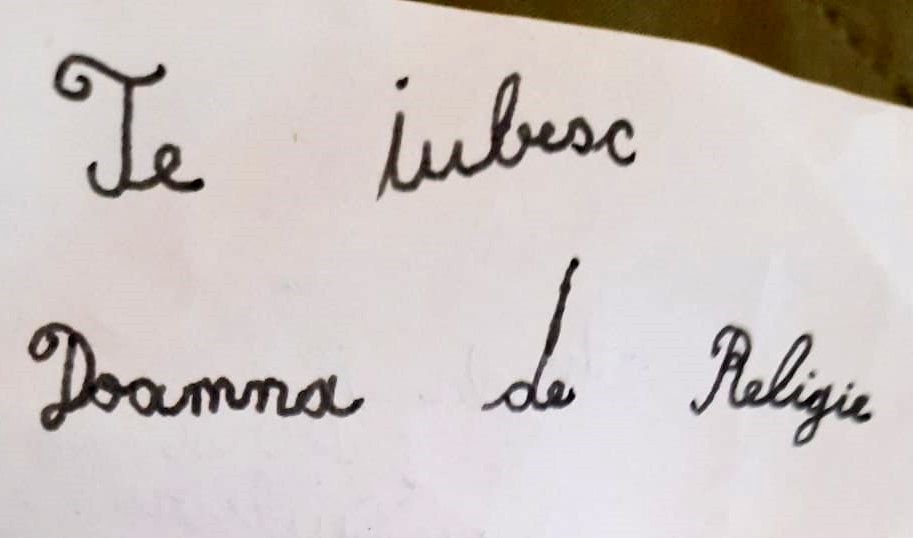 Te iubesc
Doamna de Religie